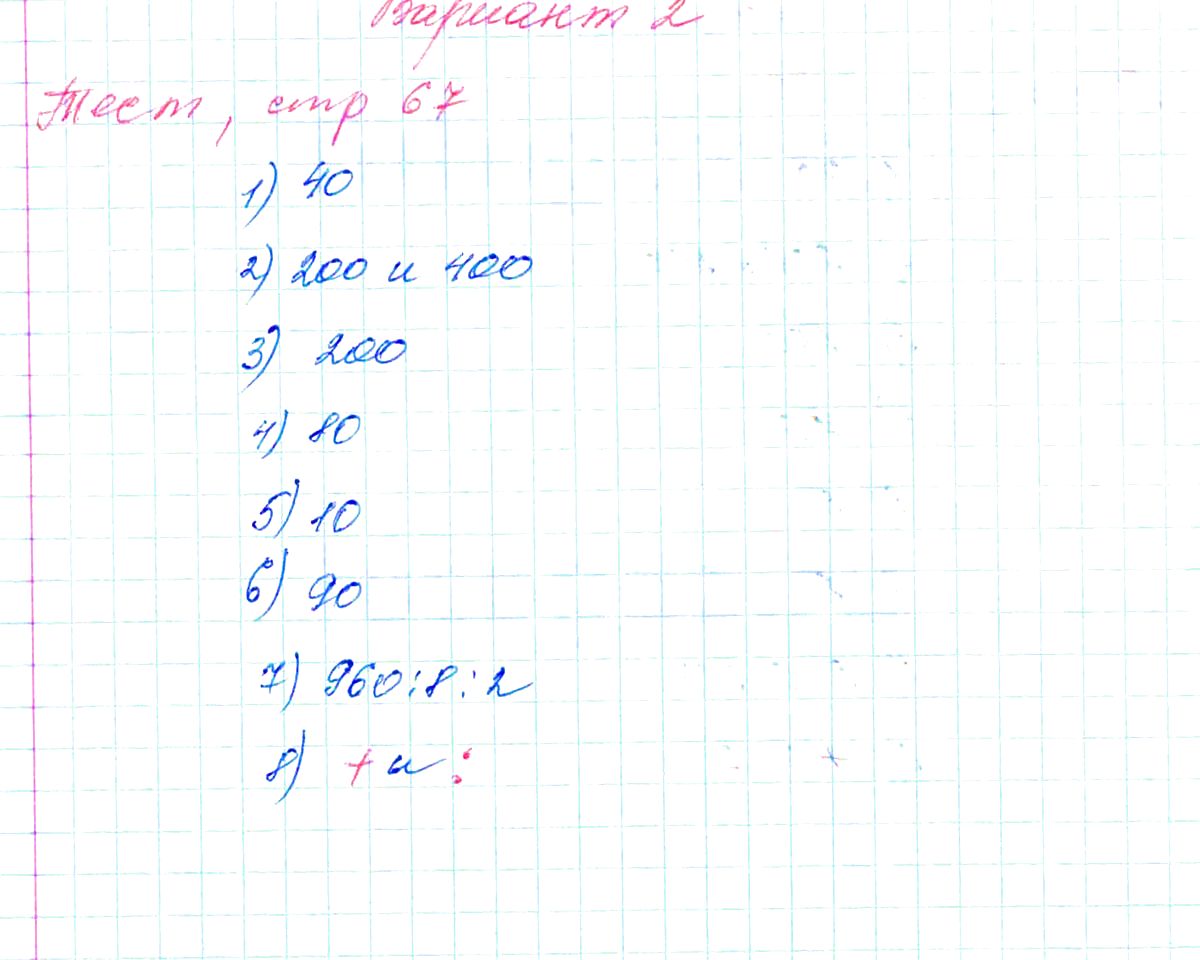 Вариант 2
Тест, стр 67
1) 40
2) 200 и 400
3) 200
4) 80
5) 10
6) 90
7) 960:8:2
8) + и :